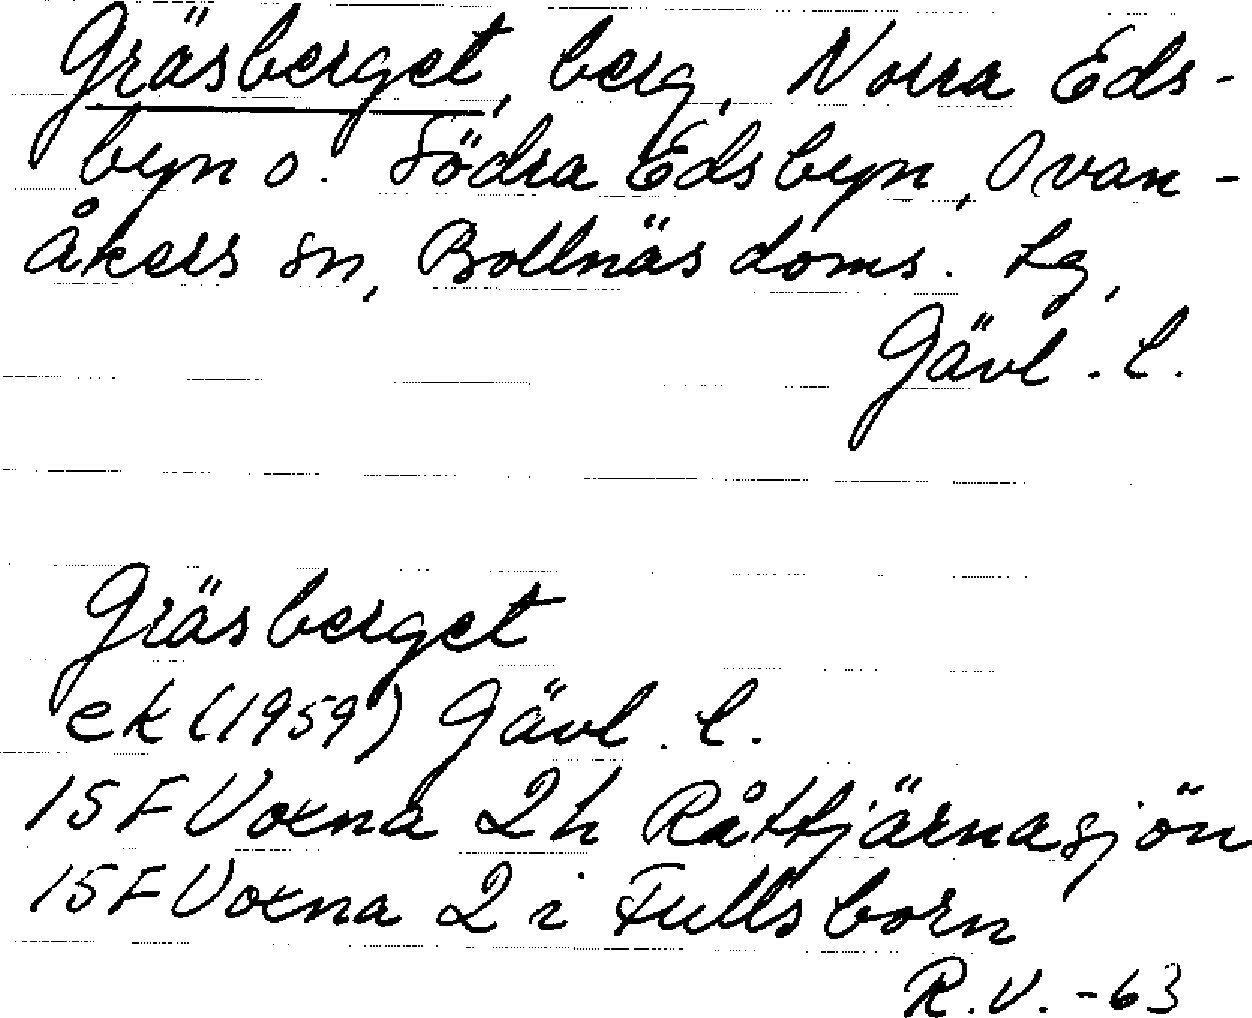 Gräsberget, berg, Norra Eds-
byn o. Södra Edsbyn, Ovan-
åkers sn, Bollnäs doms. Lg,
Gävl. l.
Gräsberget
ek (1959) Gävl. l.
15F Voxna 2h Råttjärnasjön
15F Voxna 2i Fullsborn
R.V. -63